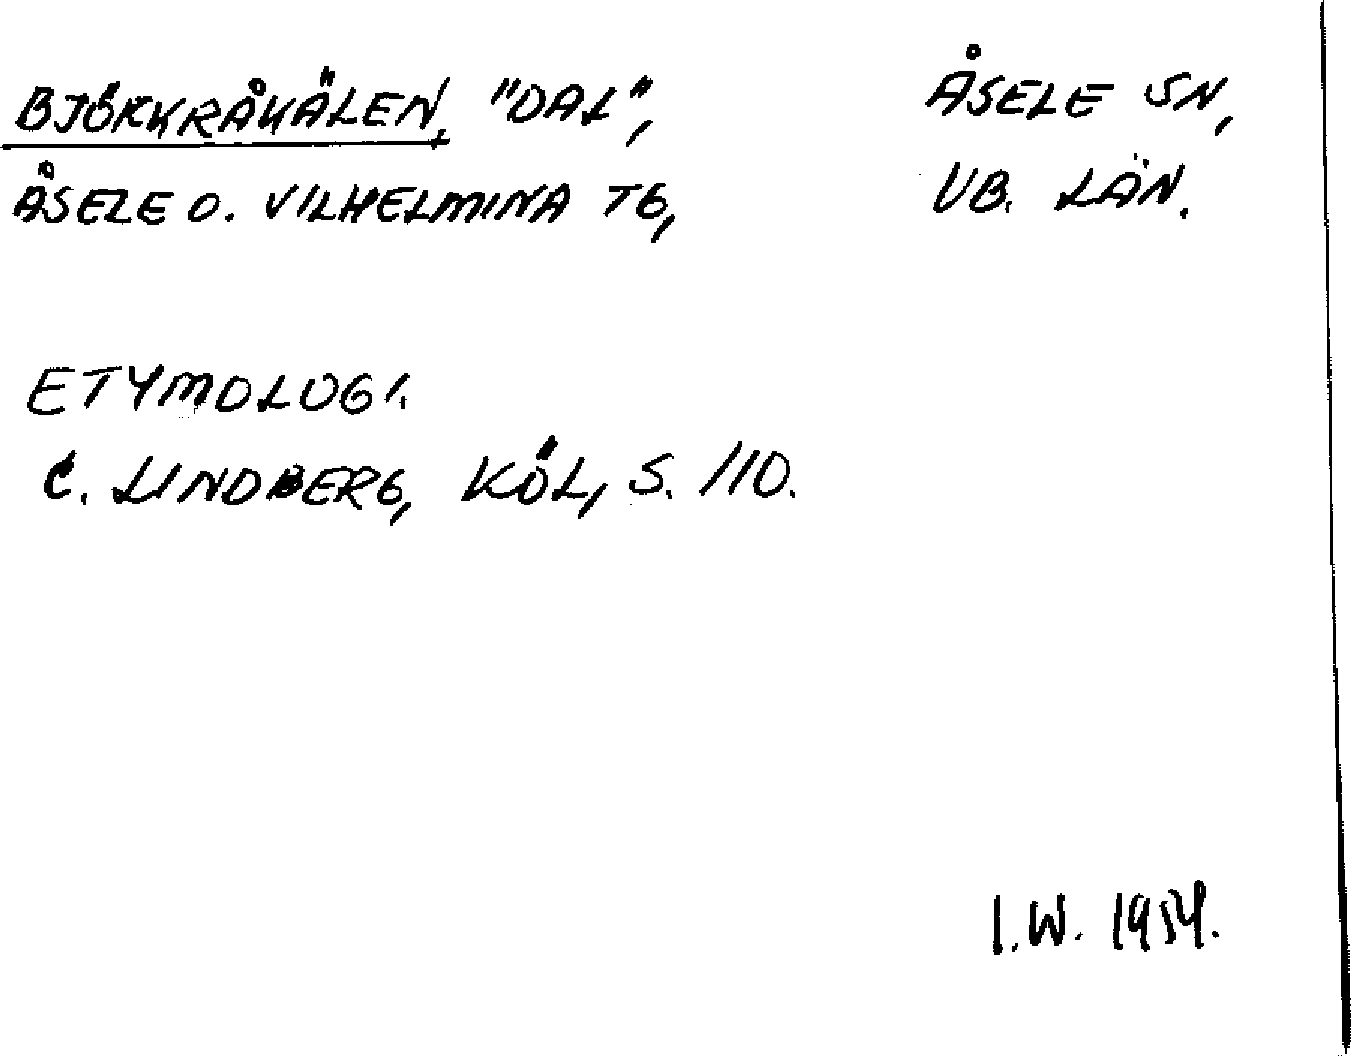 BJÖRKRÅKÄLEN, "DAL",
ÅSELE SN,
ÅSELE O. VILHELMINA TG,
VB. LÄN.
ETYMOLOGI.
C. LINDBERG, KÖL, S. 110.
I.W. 1954.